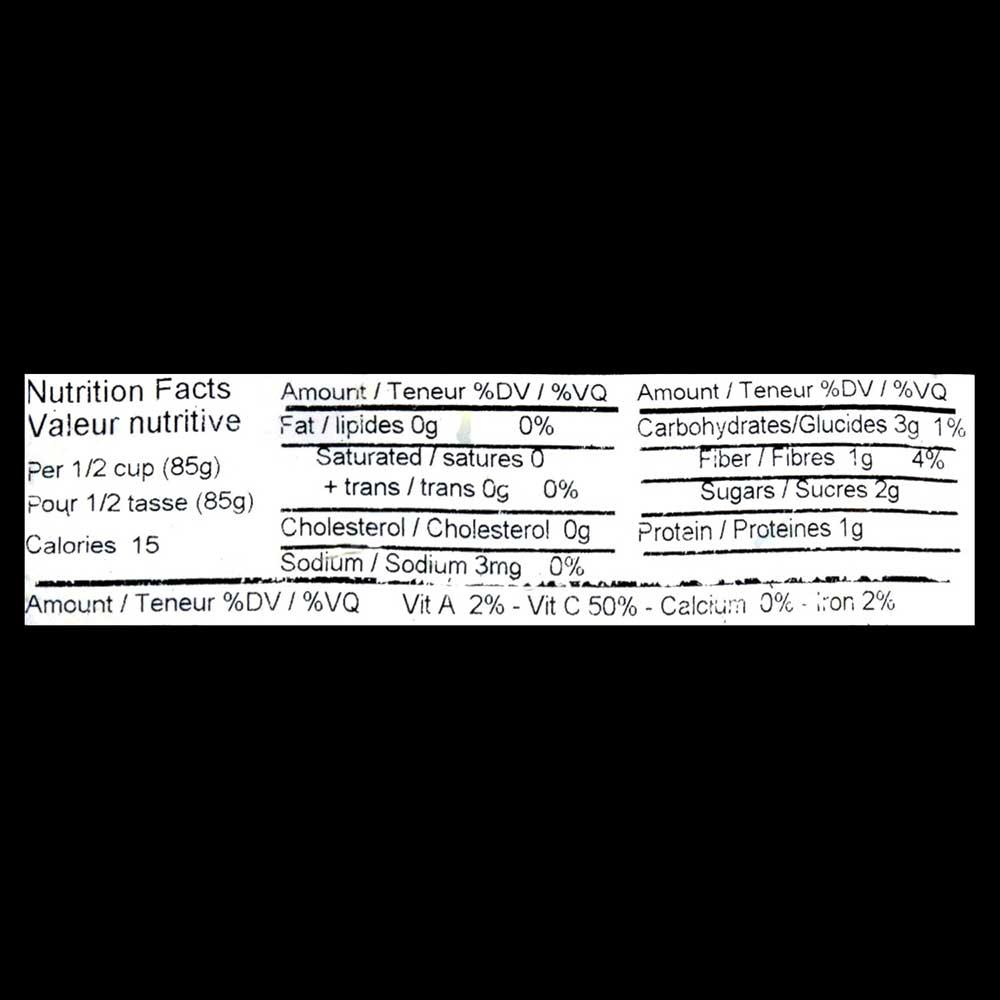 Nutrition Facts
Valeur nutritive
Per 1/2 cup (85g)
Pour 1/2 tasse (85g)
Calories 15
Amount / Teneur %DV / %VQ
Fat / lipides 0g 0%
Saturated / satures 0
+ trans / trans 0g 0%
Cholesterol / Cholesterol 0g
Sodium / Sodium 3mg 0%
Amount / Teneur %DV / %VQ
Carbohydrates/Glucides 3g 1%
Fiber / Fibres 1g 4%
Sugars / Sucres 2g
Protein / Proteines 1g
Amount / Teneur %DV / %VQ Vit A 2% - Vit C 50% - Calcium 0% - iron 2%